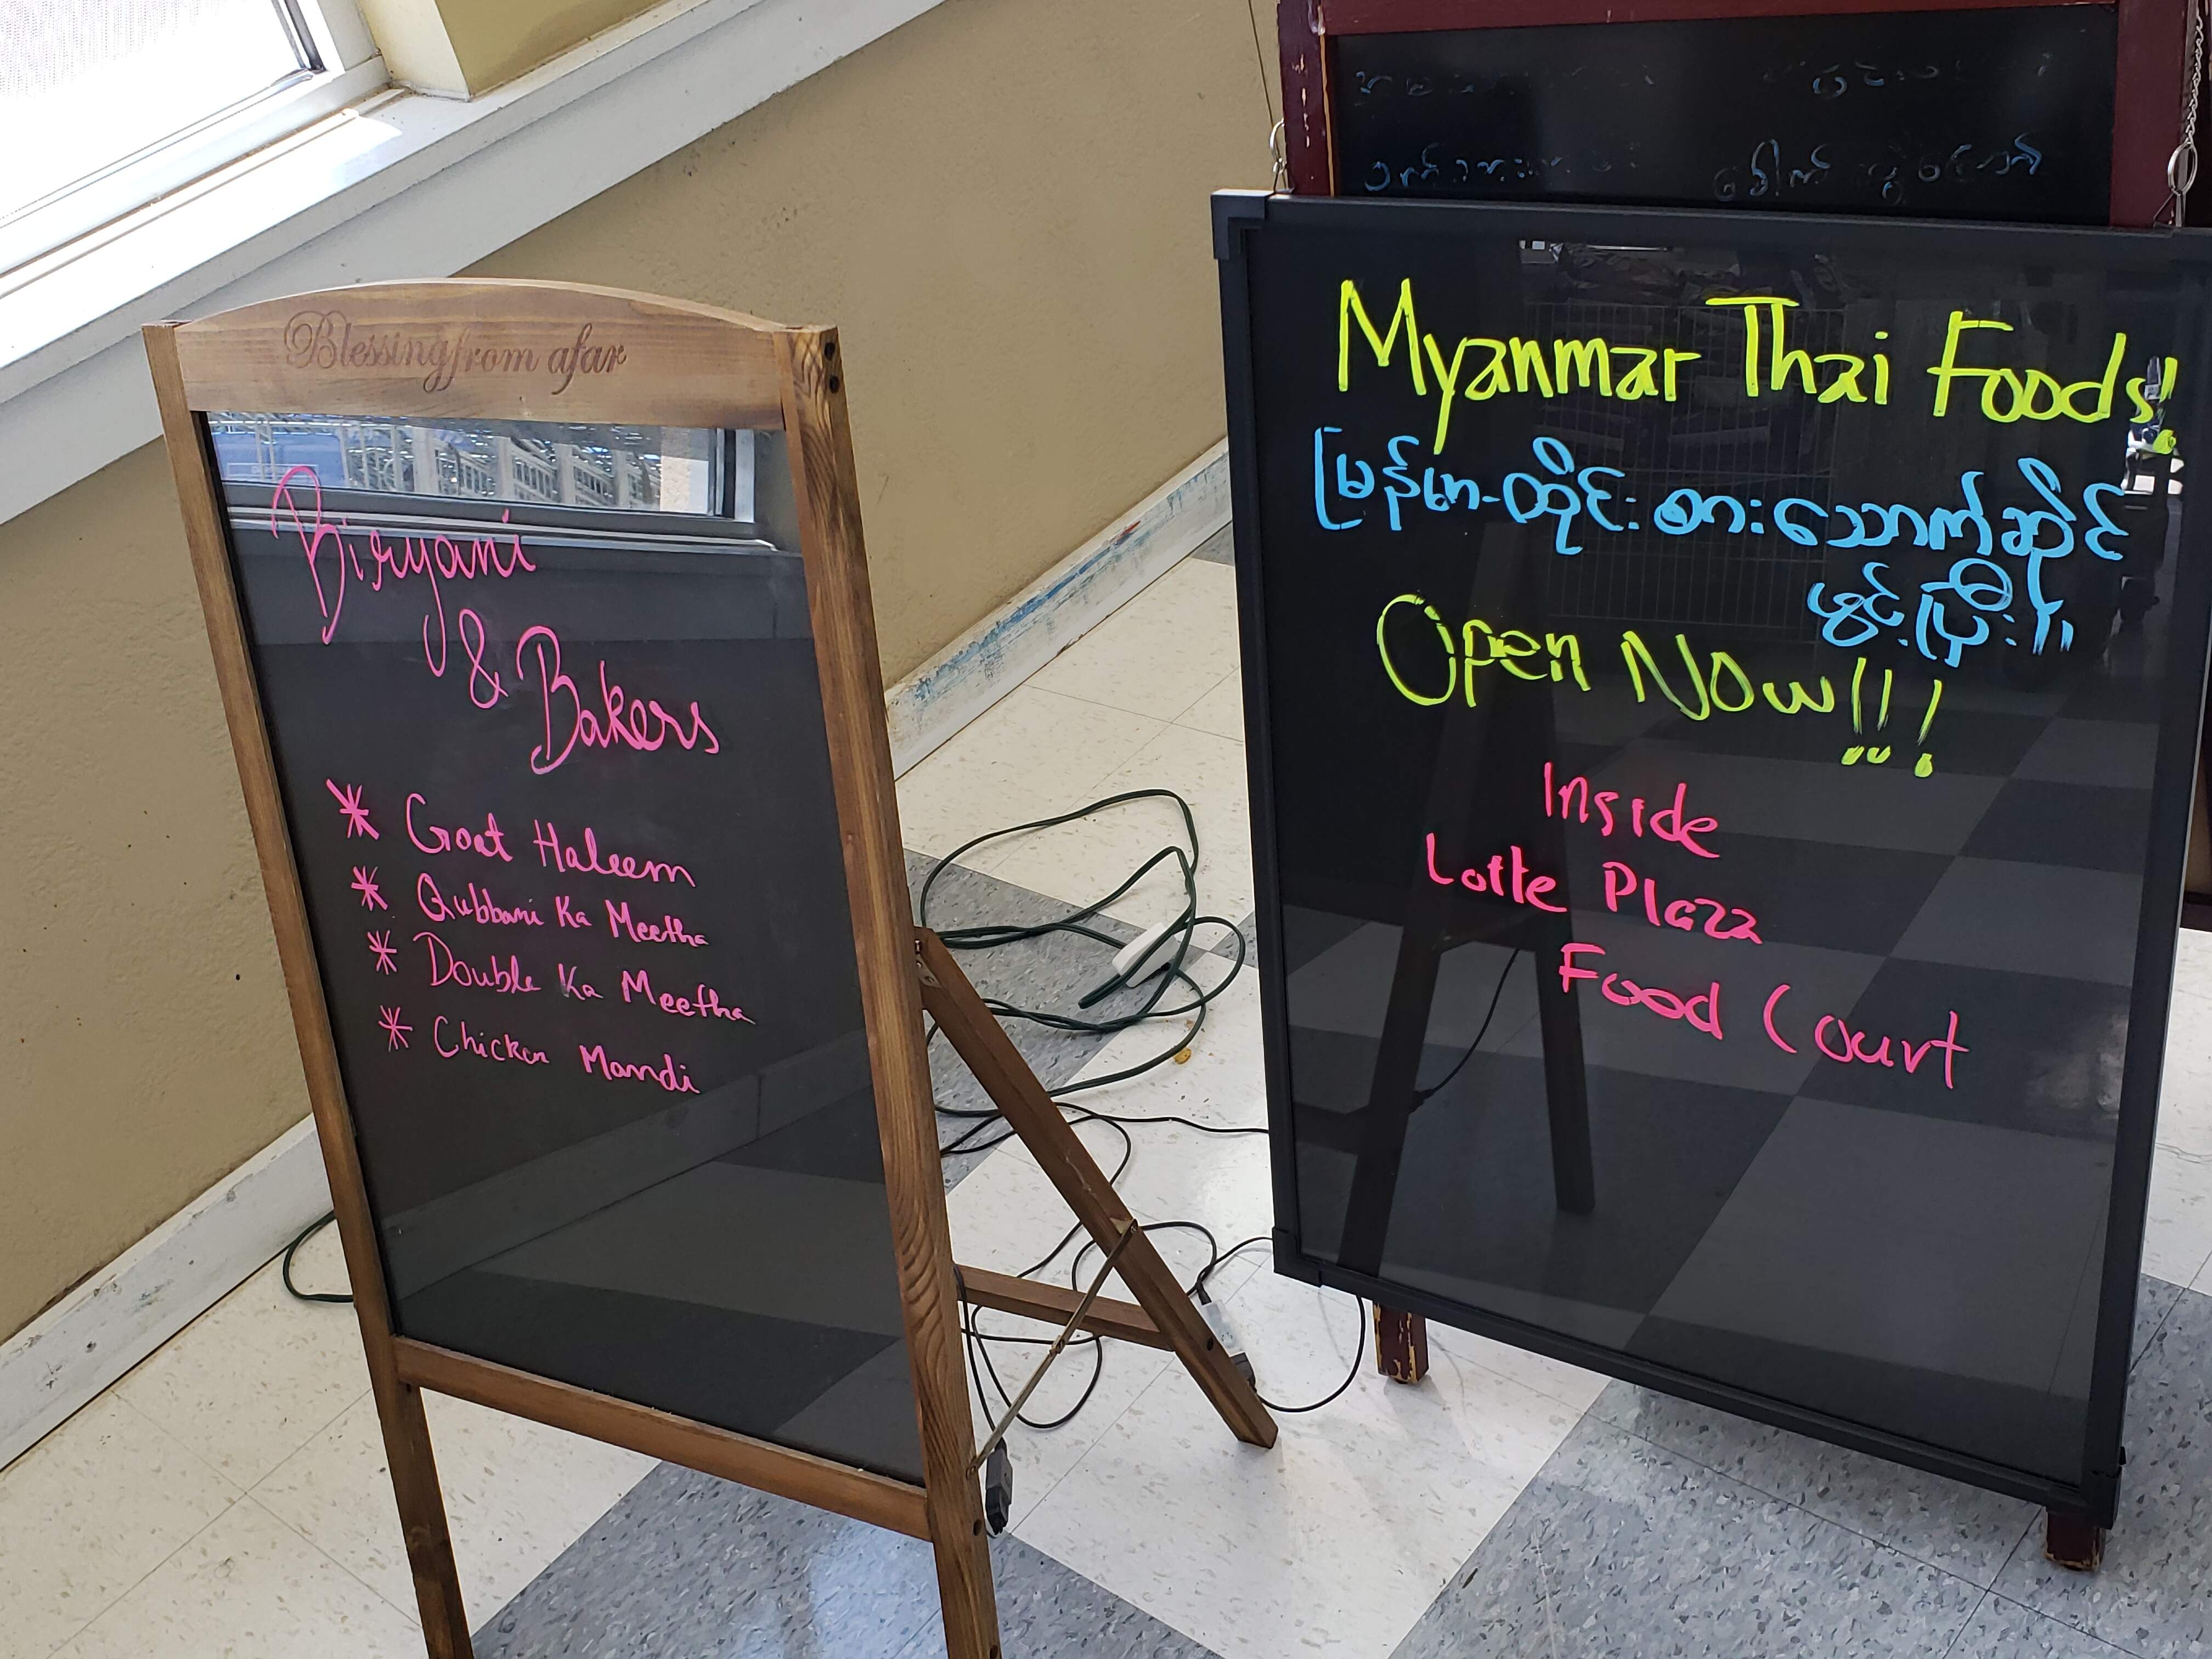 Blessing from afar
Biryani
& Bakers
* Goat Haleem
* Qubbani Ka Meetha
* Double Ka Meetha
* Chicken Mandi
Myanmar Thai Foods!
မြန်မာ-ထိုင်းစားသောက်ဆိုင်
ဖွင့်ပြီး။
Open Now!!!
Inside
Lotte Plaza
Food Court